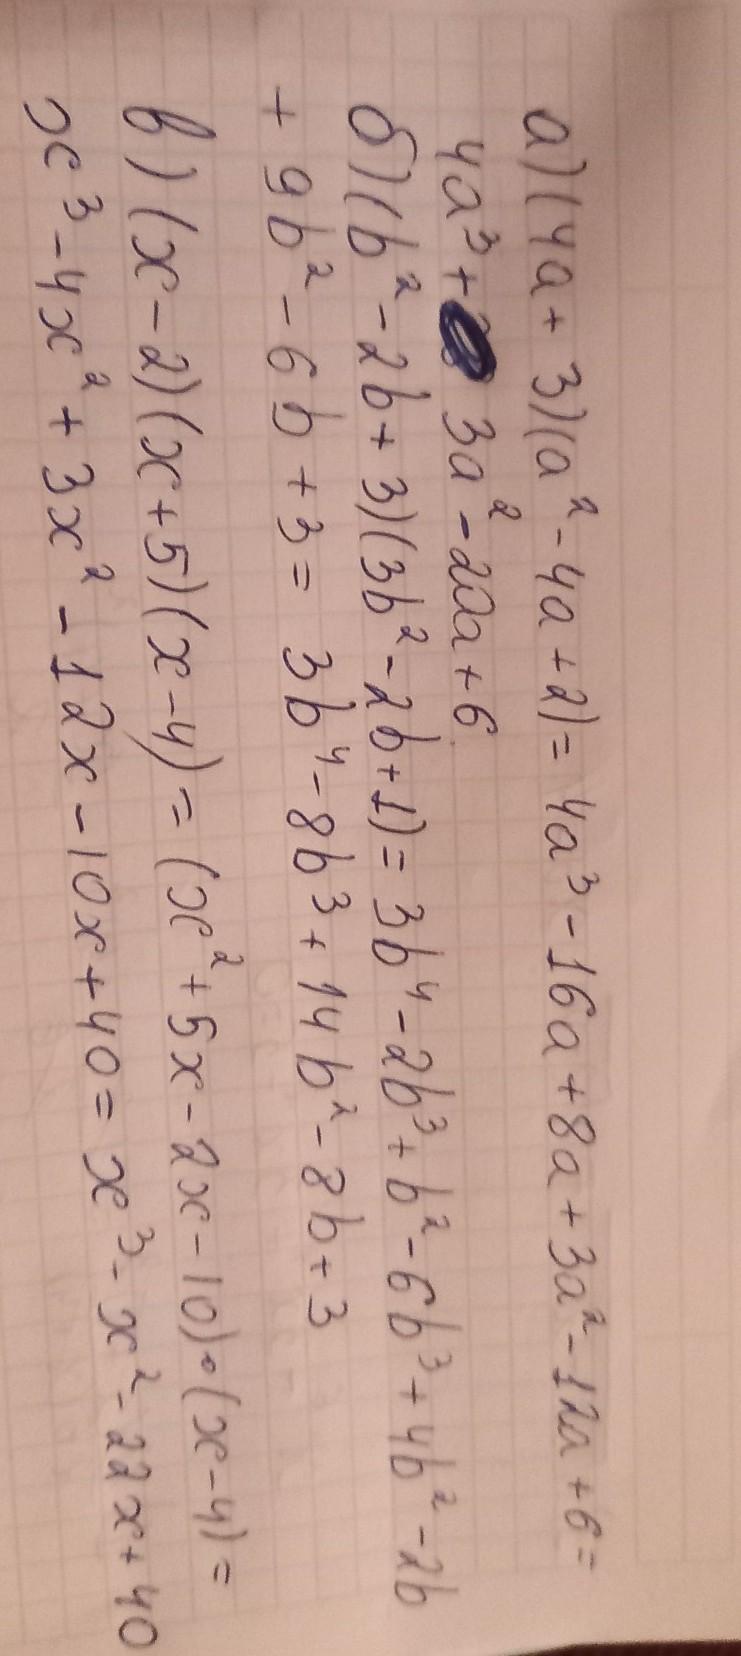 а) (4a + 3)(a² - 4a + 2) = 4a³ - 16a + 8a + 3a² - 12a + 6 =
4a³ + 3a² - 20a + 6
б) (b² - 2b + 3)(3b² - 2b + 1) = 3b⁴ - 2b³ + b² - 6b³ + 4b² - 2b
+ 9b² - 6b + 3 = 3b⁴ - 8b³ + 14b² - 8b + 3
в) (x - 2)(x + 5)(x - 4) = (x² + 5x - 2x - 10) • (x - 4) =
x³ - 4x² + 3x² - 12x - 10x + 40 = x³ - x² - 22x + 40